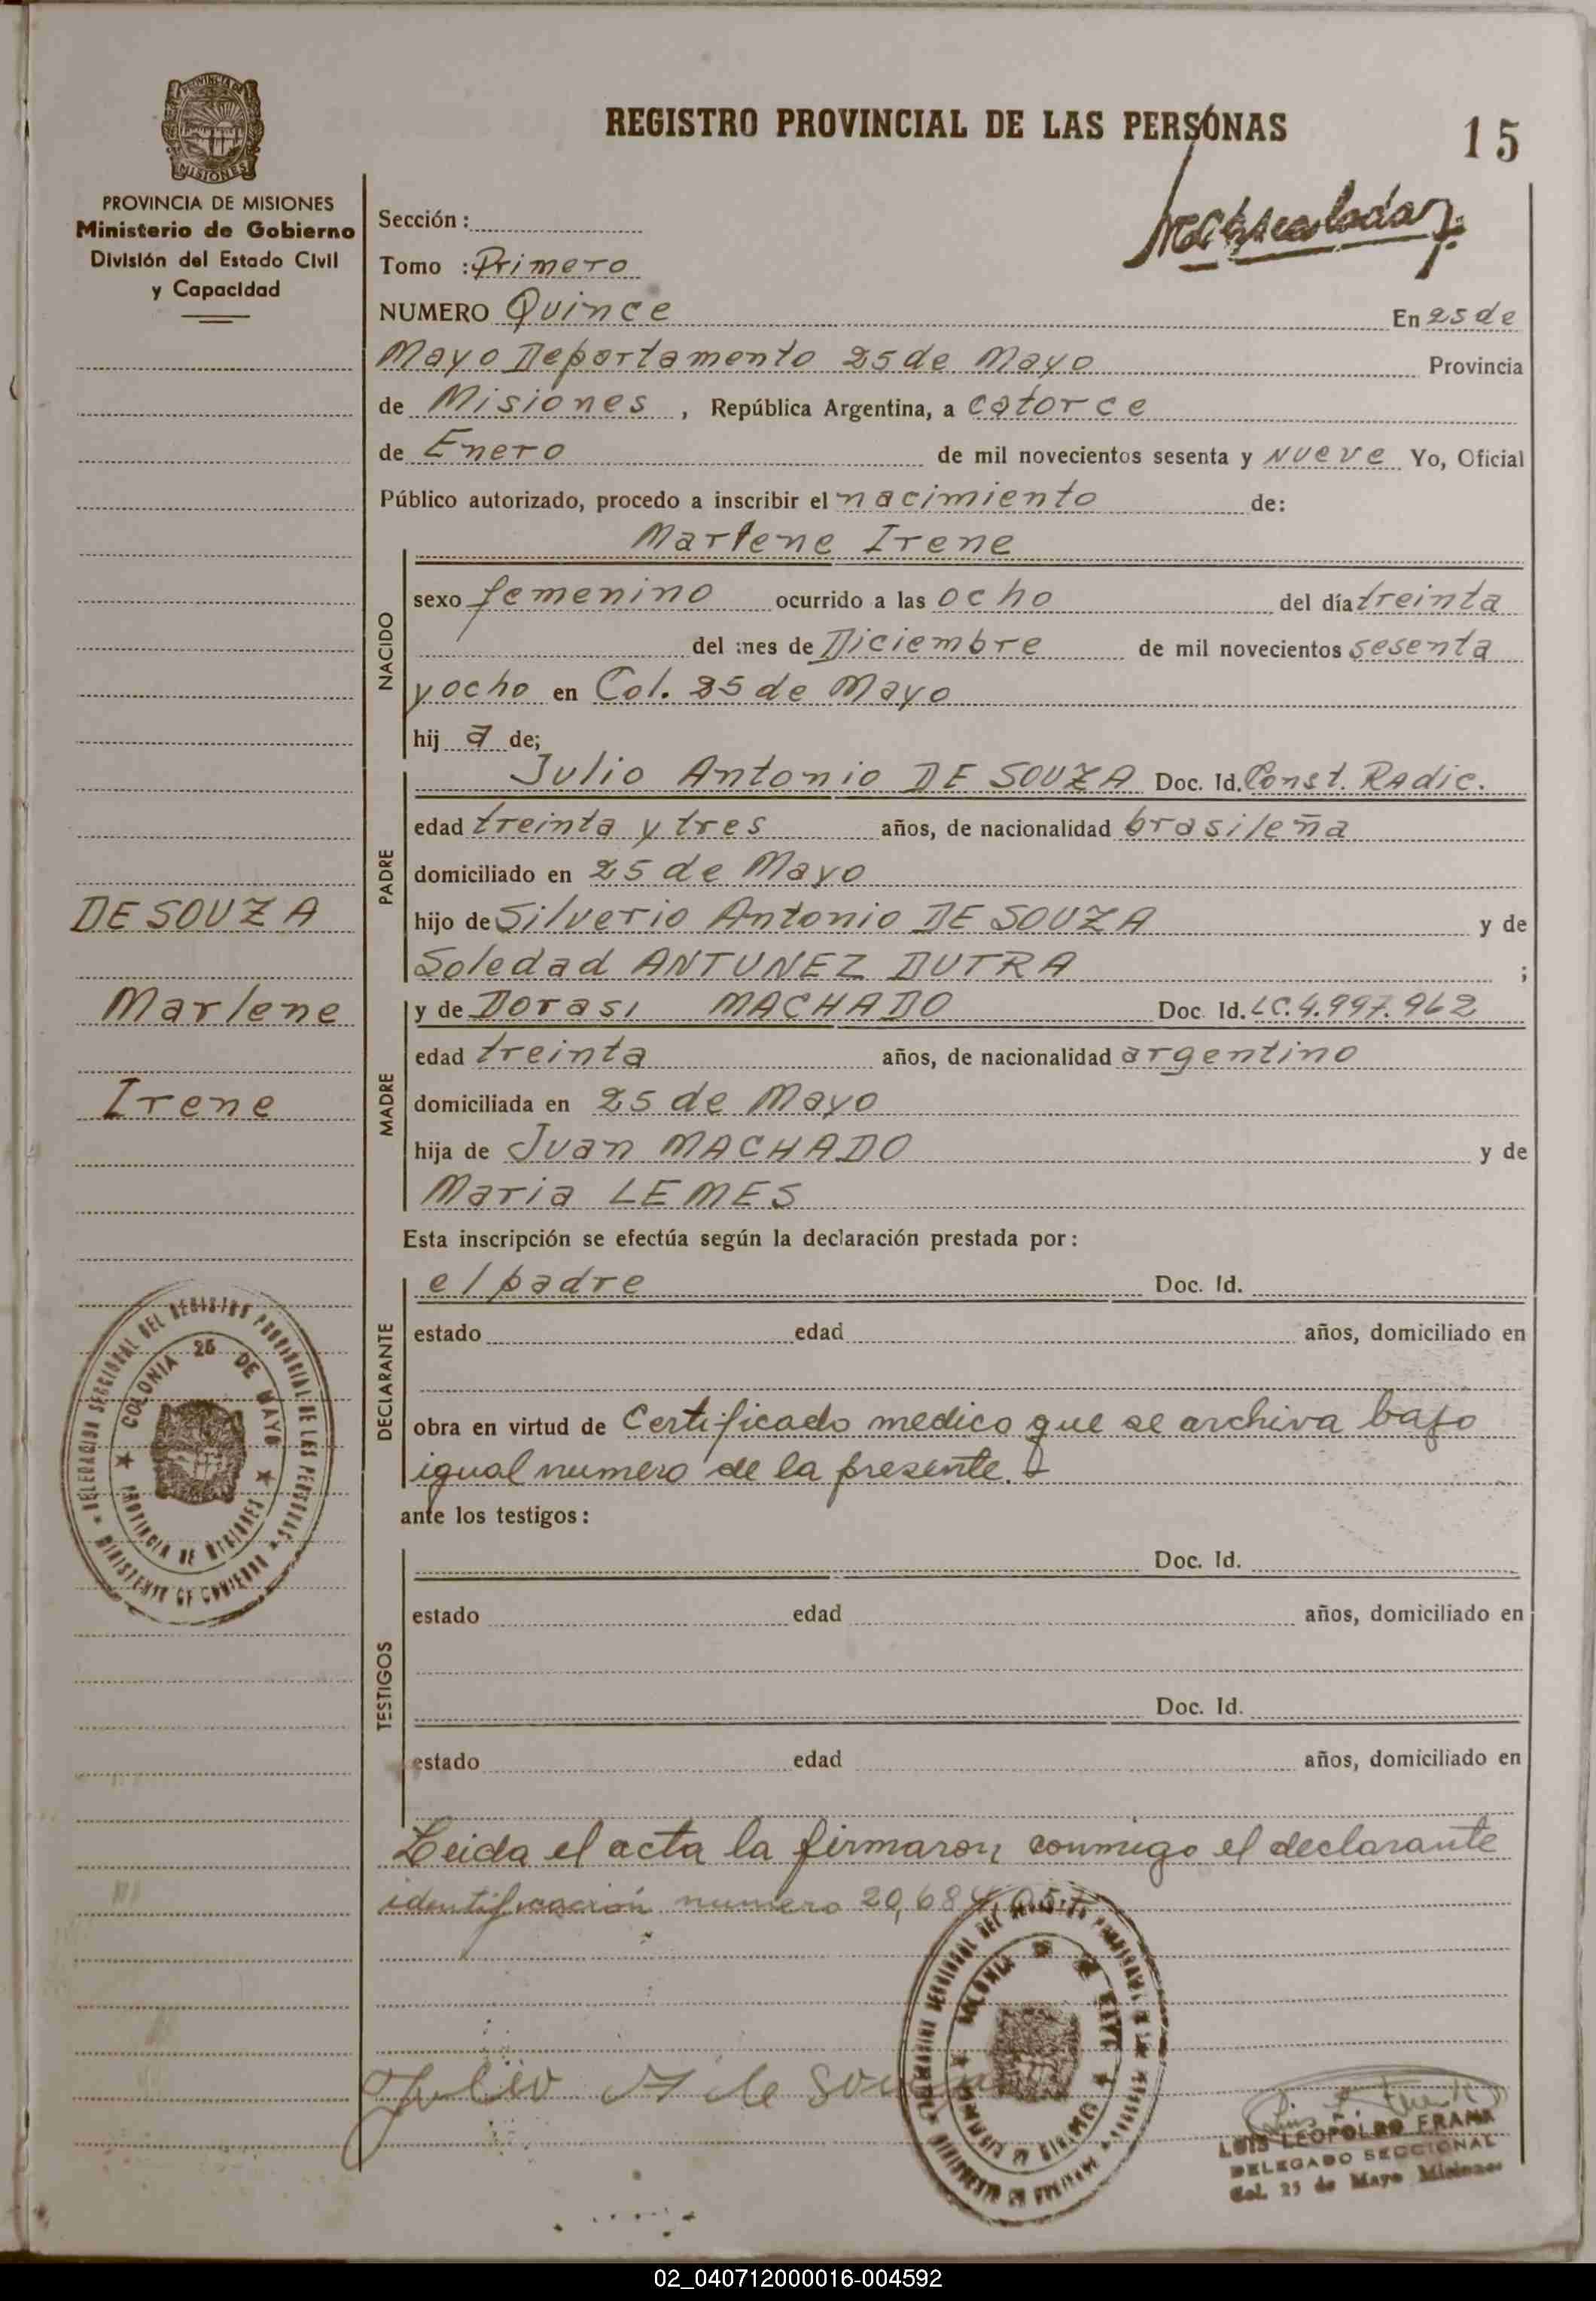 PROVINCIA DE MISIONES
Ministerio de Gobierno
División del Estado Civil
y Capacidad
REGISTRO PROVINCIAL DE LAS PERSONAS
15
Sección :
Tomo : Primero
NUMERO Quince En 25 de
Mayo Departamento 25 de Mayo Provincia
de Misiones , República Argentina, a catorce
de Enero de mil novecientos sesenta y nueve Yo, Oficial
Público autorizado, procedo a inscribir el nacimiento de:
NACIDO
Marlene Irene
sexo femenino ocurrido a las ocho del día treinta
del mes de Diciembre de mil novecientos sesenta
y ocho en Col. 25 de Mayo
hij a de;
PADRE
Julio Antonio DE SOUZA Doc. Id. Const. Radic.
edad treinta y tres años, de nacionalidad brasileña
domiciliado en 25 de Mayo
hijo de Silverio Antonio DE SOUZA y de
Soledad ANTUNEZ DUTRA ;
MADRE
y de Dorasi MACHADO Doc. Id. LC. 4.997.962
edad treinta años, de nacionalidad argentino
domiciliada en 25 de Mayo
hija de Juan MACHADO y de
Maria LEMES
DE SOUZA
Marlene
Irene
Esta inscripción se efectúa según la declaración prestada por :
DECLARANTE
el padre Doc. Id.
estado edad años, domiciliado en
obra en virtud de Certificado medico que se archiva bajo
igual numero de la presente.
DELEGACION SECCIONAL DEL REGISTRO PROVINCIAL DE LAS PERSONAS
MINISTERIO DE GOBIERNO
COLONIA 25 DE MAYO
PROVINCIA DE MISIONES
ante los testigos :
TESTIGOS
Doc. Id.
estado edad años, domiciliado en
Doc. Id.
estado edad años, domiciliado en
Leida el acta la firmaron conmigo el declarante
identificación numero 20,68
Julio A de Souza
LUIS LEOPOLDO FRANK
DELEGADO SECCIONAL
Col. 25 de Mayo Misiones
02_040712000016-004592